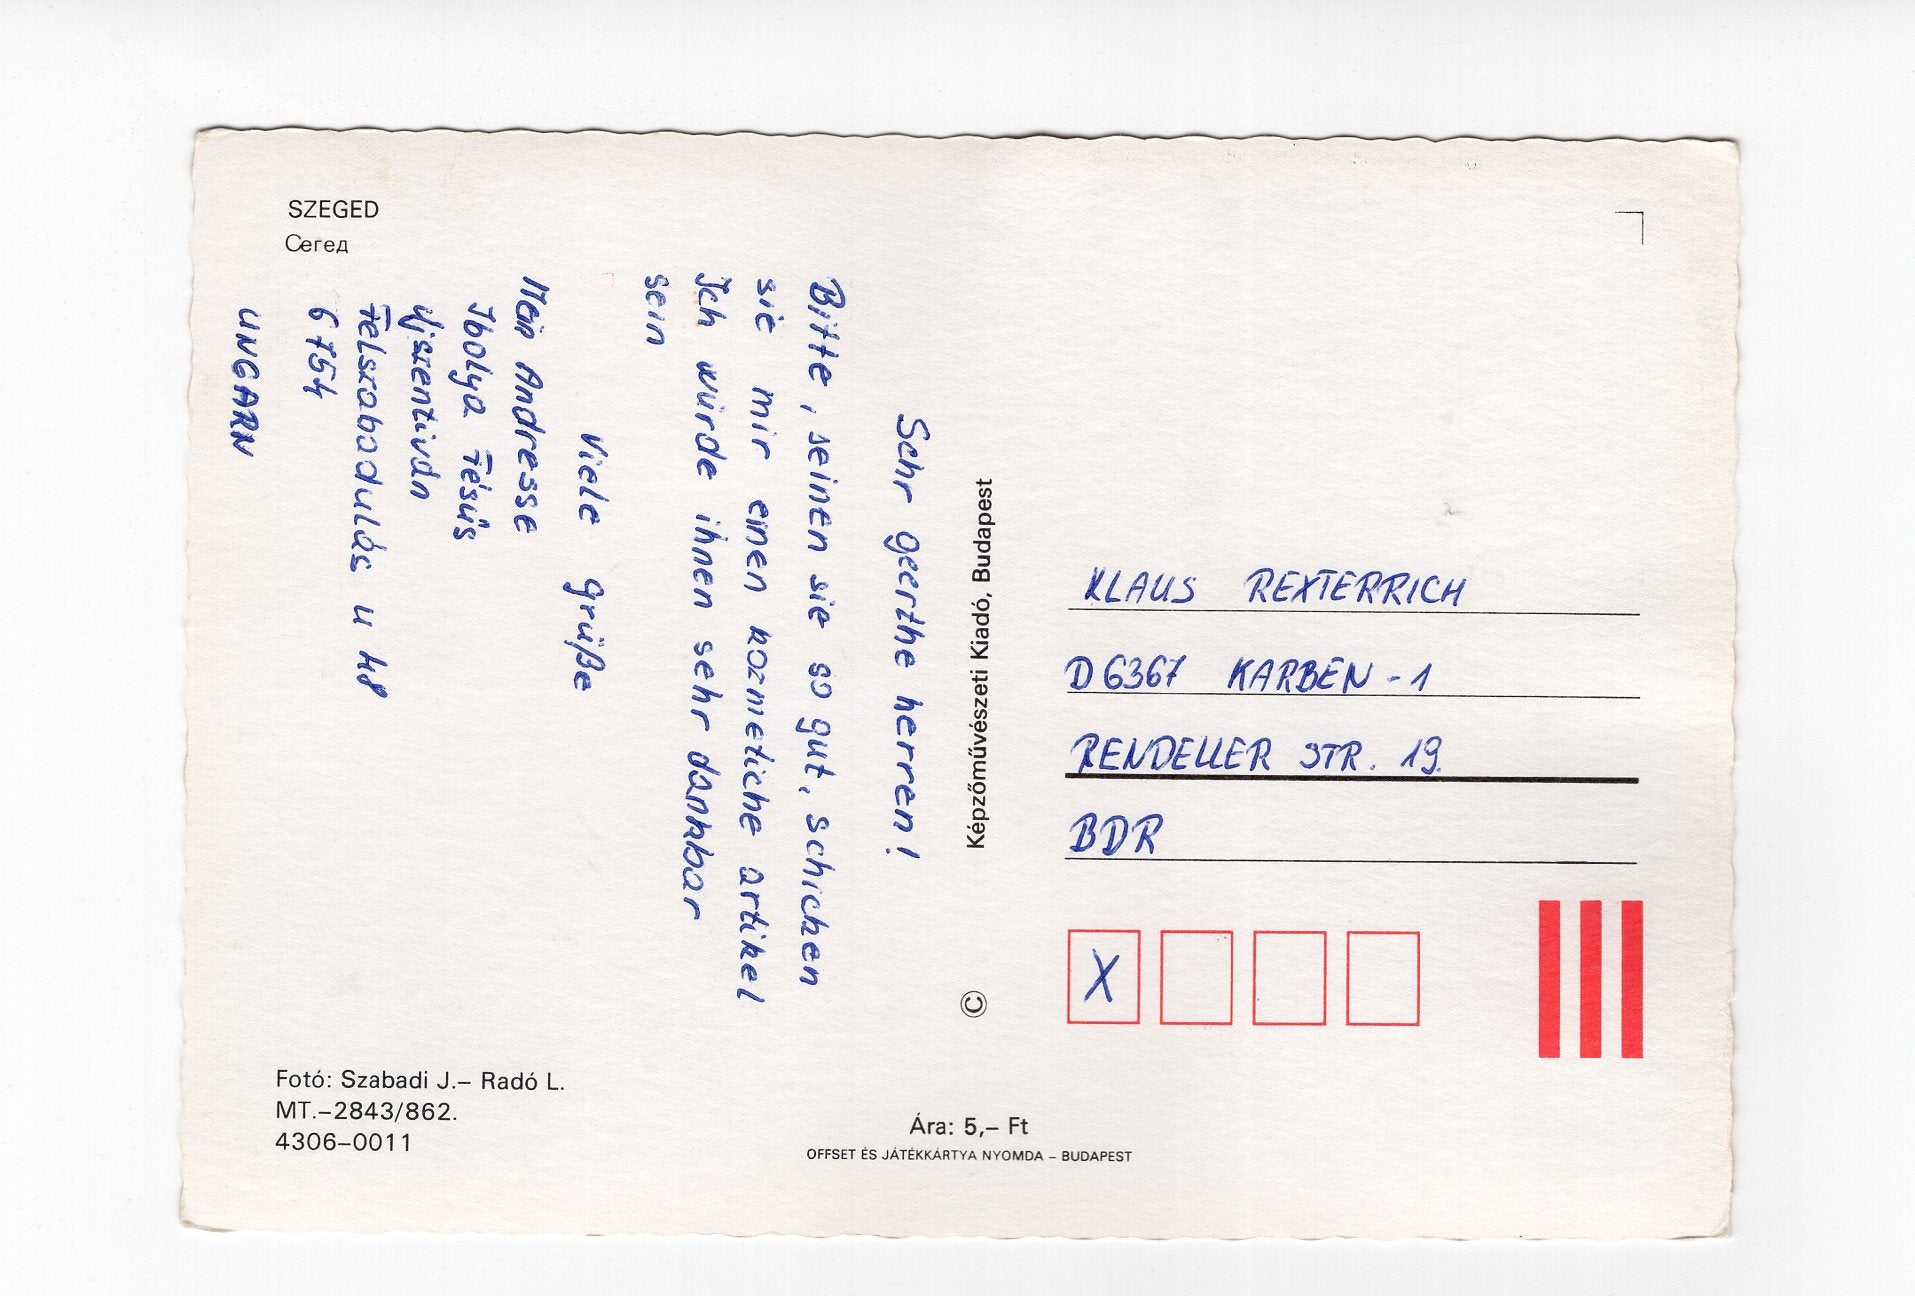 SZEGED
Сегед
Sehr geerthe herren!
Bitte, seinen sie so gut, schicken
sie mir einen kozmetiche artikel
Ich würde ihnen sehr dankbar
sein
Viele grüße
Mein Andresse
Ibolya Tésüs
Ujszentiván
Felszabadulás u 48
6754
UNGARN
Képzőművészeti Kiadó, Budapest
©
KLAUS REXTERRICH
D6367 KARBEN-1
RENDELLER STR. 19.
BDR
X
Fotó: Szabadi J.– Radó L.
MT.–2843/862.
4306–0011
Ára: 5,– Ft
OFFSET ÉS JÁTÉKKÁRTYA NYOMDA – BUDAPEST